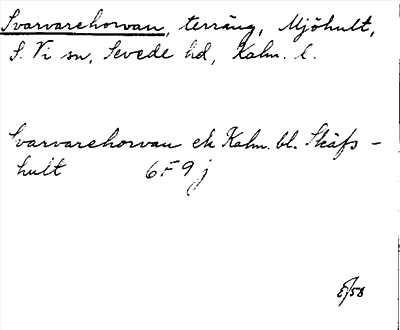 Svarvarehorvan, terräng, Mjöhult,
S. Vi sn, Sevede hd, Kalm. l.
Svarvarehorvan ek Kalm. bl. Skäfs-
hult 6F9j
E/58